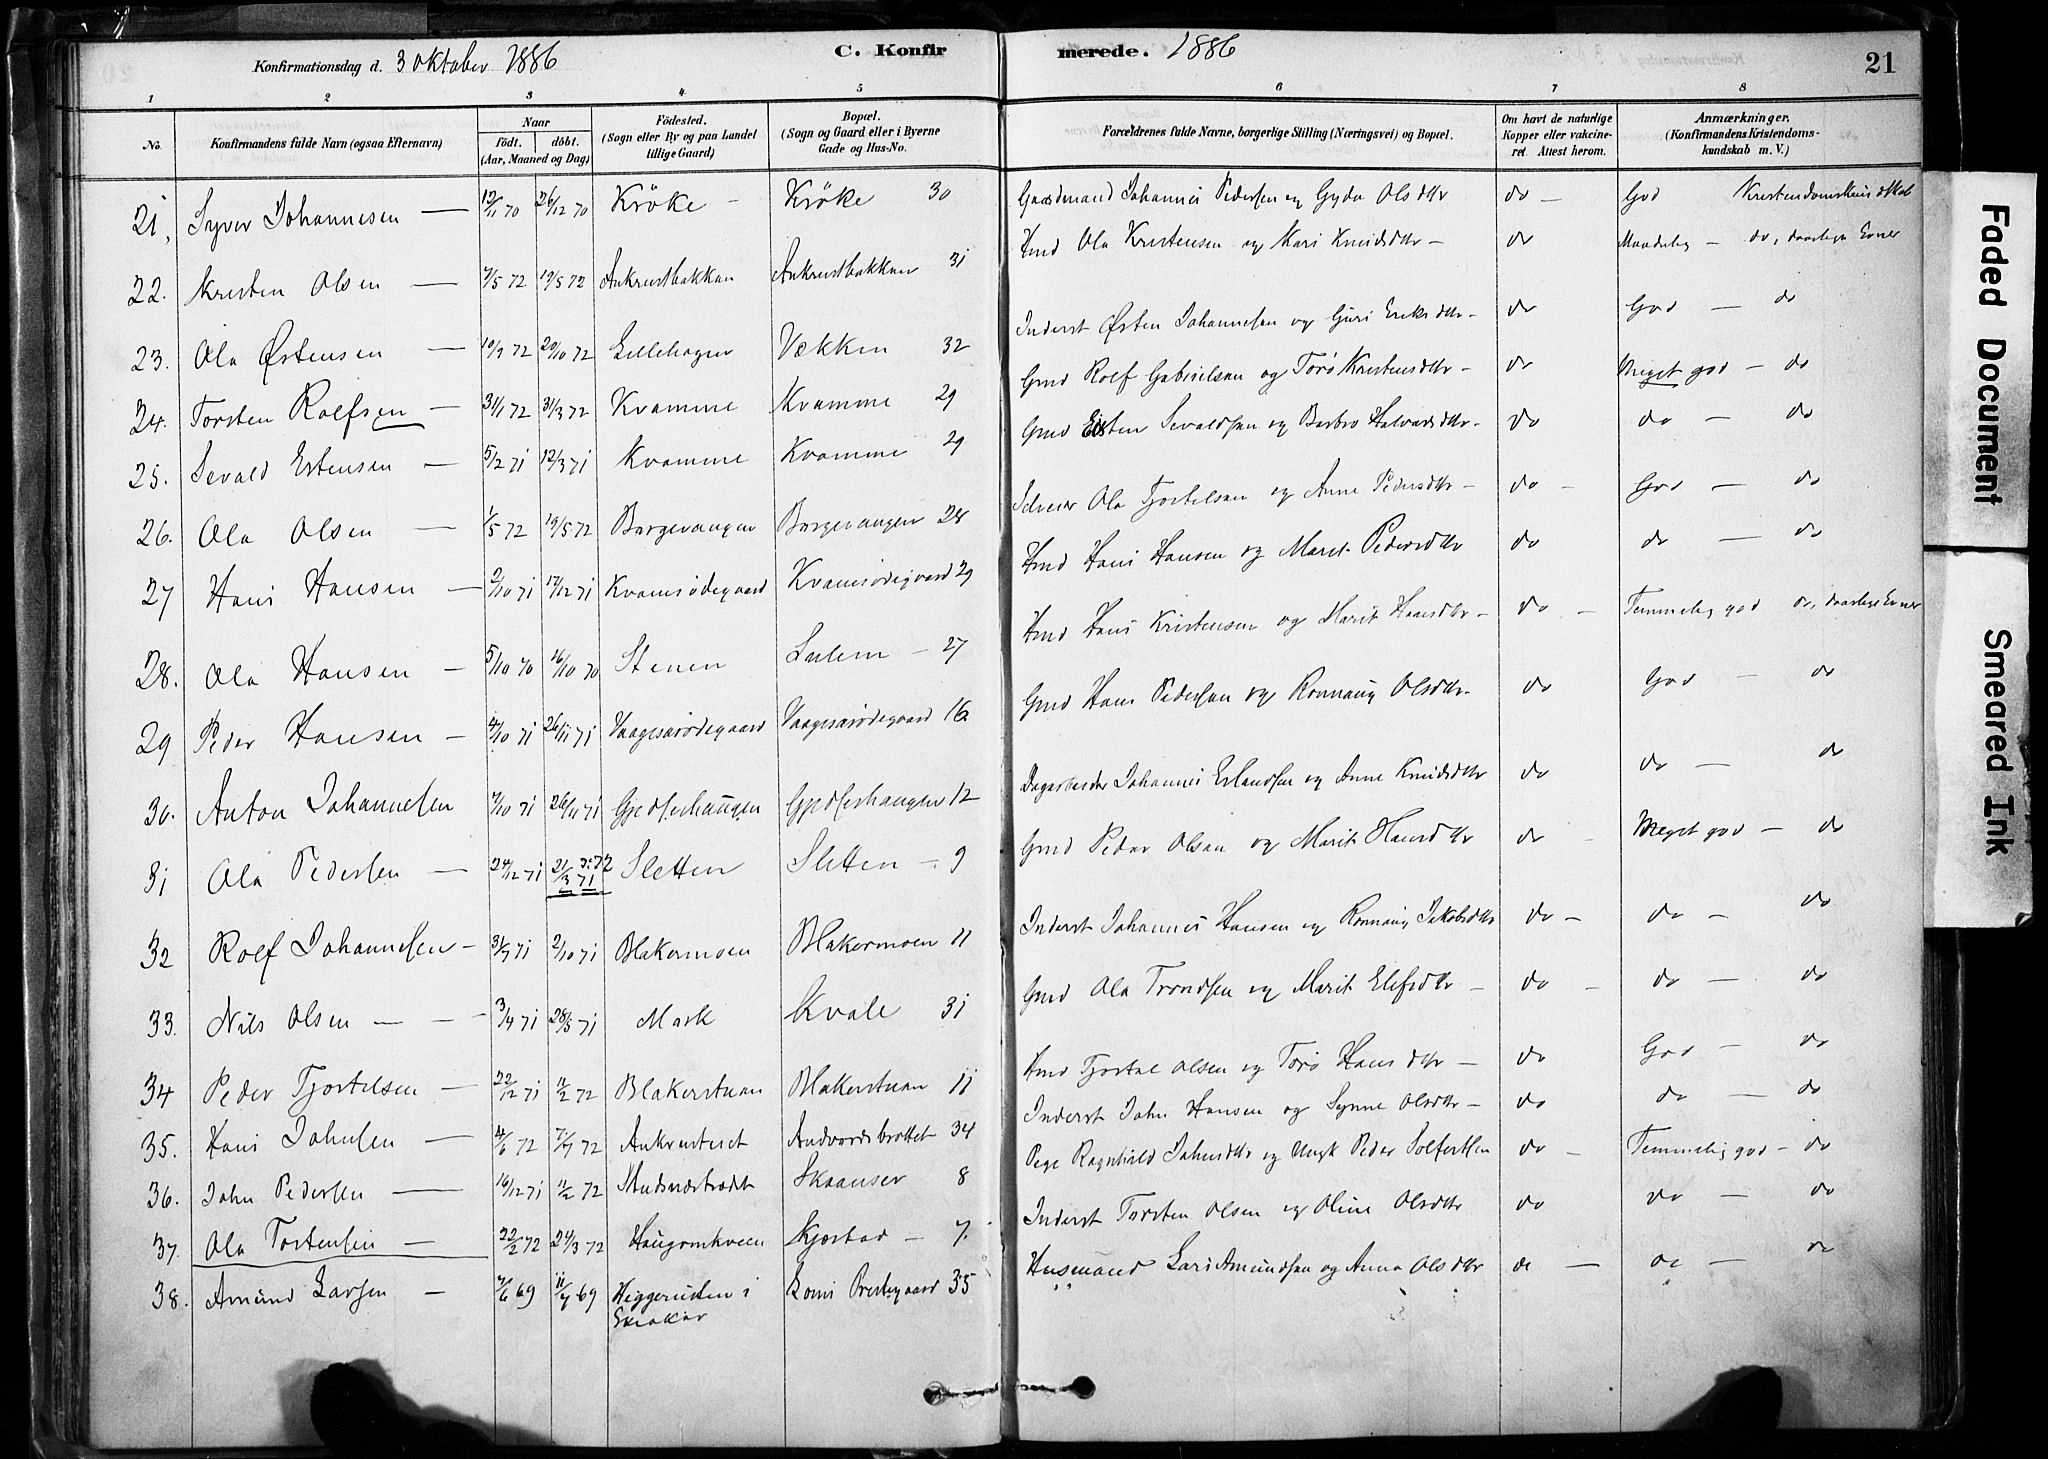 Konfirmationsdag d. 3 Oktober 1886
C. Konfirmerede. 1886
21
1 2 3 4 5 6 7 8
No. Konfirmandens fulde Navn (ogsaa Efternavn) Naar født. døbt. (Aar, Maaned og Dag) Fødested. (Sogn eller By og paa Landet tillige Gaard) Bopæl. (Sogn og Gaard eller i Byerne Gade og Hus-No. Forældrenes fulde Navne, borgerlige Stilling (Næringsvei) og Bopæl. Om havt de naturlige Kopper eller vakcineret. Attest herom. Anmærkninger. (Konfirmandens Kristendomskundskab m. V.)
21, Syver Johannesen 12/11 70 26/12 70 Krøke Krøke 30 Gaardmand Johannes Pedersen og Gyda Olsdtr do God Kristendomskundskab
22. Kristen Olsen 4/5 72 19/5 72 Ankrustbakken Ankrustbakken 31 Hmd Ola Kristensen og Kari Knudsdtr do Maadelig do, daarlige Evner
23. Ola Østensen 10/9 72 20/10 72 Lillehagen Vækken 32 Inderst Østen Johannesen og Guri Eriksdtr do God do
24. Torsten Rolfsen 31/1 72 31/3 72 Kvamme Kvamme 29 Gmd Rolf Gabrielsen og Torø Kristensdtr do Meget god do
25. Sevald Estensen 5/2 71 12/3 71 Kvamme Kvamme 29 Gmd Esten Sevaldsen og Barbro Halvardsdtr do do do
26. Ola Olsen 1/5 72 19/5 72 Borgevangen Borgevangen 28 Selveier Ola Tjostelsen og Anne Pedersdtr do God do
27 Hans Hansen 2/10 71 17/12 71 Kvamsødegaard Kvamsødegaard 29 Hmd Hans Hansen og Marit Pedersdtr do do do
28. Ola Hansen 5/10 70 16/10 70 Stenen Sulem 27 Hmd Hans Kristensen og Marit Hansdtr do Temmelig god do, daarlige Evner
29 Peder Hansen 4/10 71 26/11 71 Vaagesarødegaard Vaagesarødegaard 16 Gmd Hans Pedersen og Ronnaug Olsdtr do God do
30. Anton Johannesen 7/10 71 26/11 71 Gjedserhaugen Gjedserhaugen 12 Dagarbeider Johannes Erlandsen og Anne Knudsdtr do do do
31 Ola Pedersen 24/12 71 21/3 71 ɔ: 72 Sletten Sletten 9 Gmd Peder Olsen og Marit Hansdtr do Meget god do
32 Rolf Johannesen 31/7 71 2/10 71 Blakermoen Blakermoen 11 Inderst Johannes Hansen og Ronnaug Jakobsdtr do do do
33. Nils Olsen 3/4 71 28/5 71 Mork Kvale 31 Gmd Ola Trondsen og Marit Elefsdtr do do do
34 Peder Tjostelsen 22/12 71 11/2 72 Blakerstuen Blakerstuen 11 Hmd Tjostel Olsen og Torø Hansdtr do God do
35. Hans Johnsen 4/6 72 7/7 72 Ankrusteiet Andvordsbrottet 34 Inderst John Hansen og Synne Olsdtr do do do
36. John Pedersen 16/12 71 11/2 72 Skaanser 8 Pige Ragnhild Johnsdtr og Ungk Peder do Temmelig god do
37. Ola Tostensen 22/2 72 24/3 72 Haugomkveen Kjøstad 7. Inderst Torsten Olsen og Oline Olsdtr do do do
38. Amund Larsen 4/6 69 11/7 69 Heggerusten i Skiaker Loms Prestegaard 35 Husmand Lars Amundsen og Anna Olsdtr do do do
Faded Document
Smeared Ink